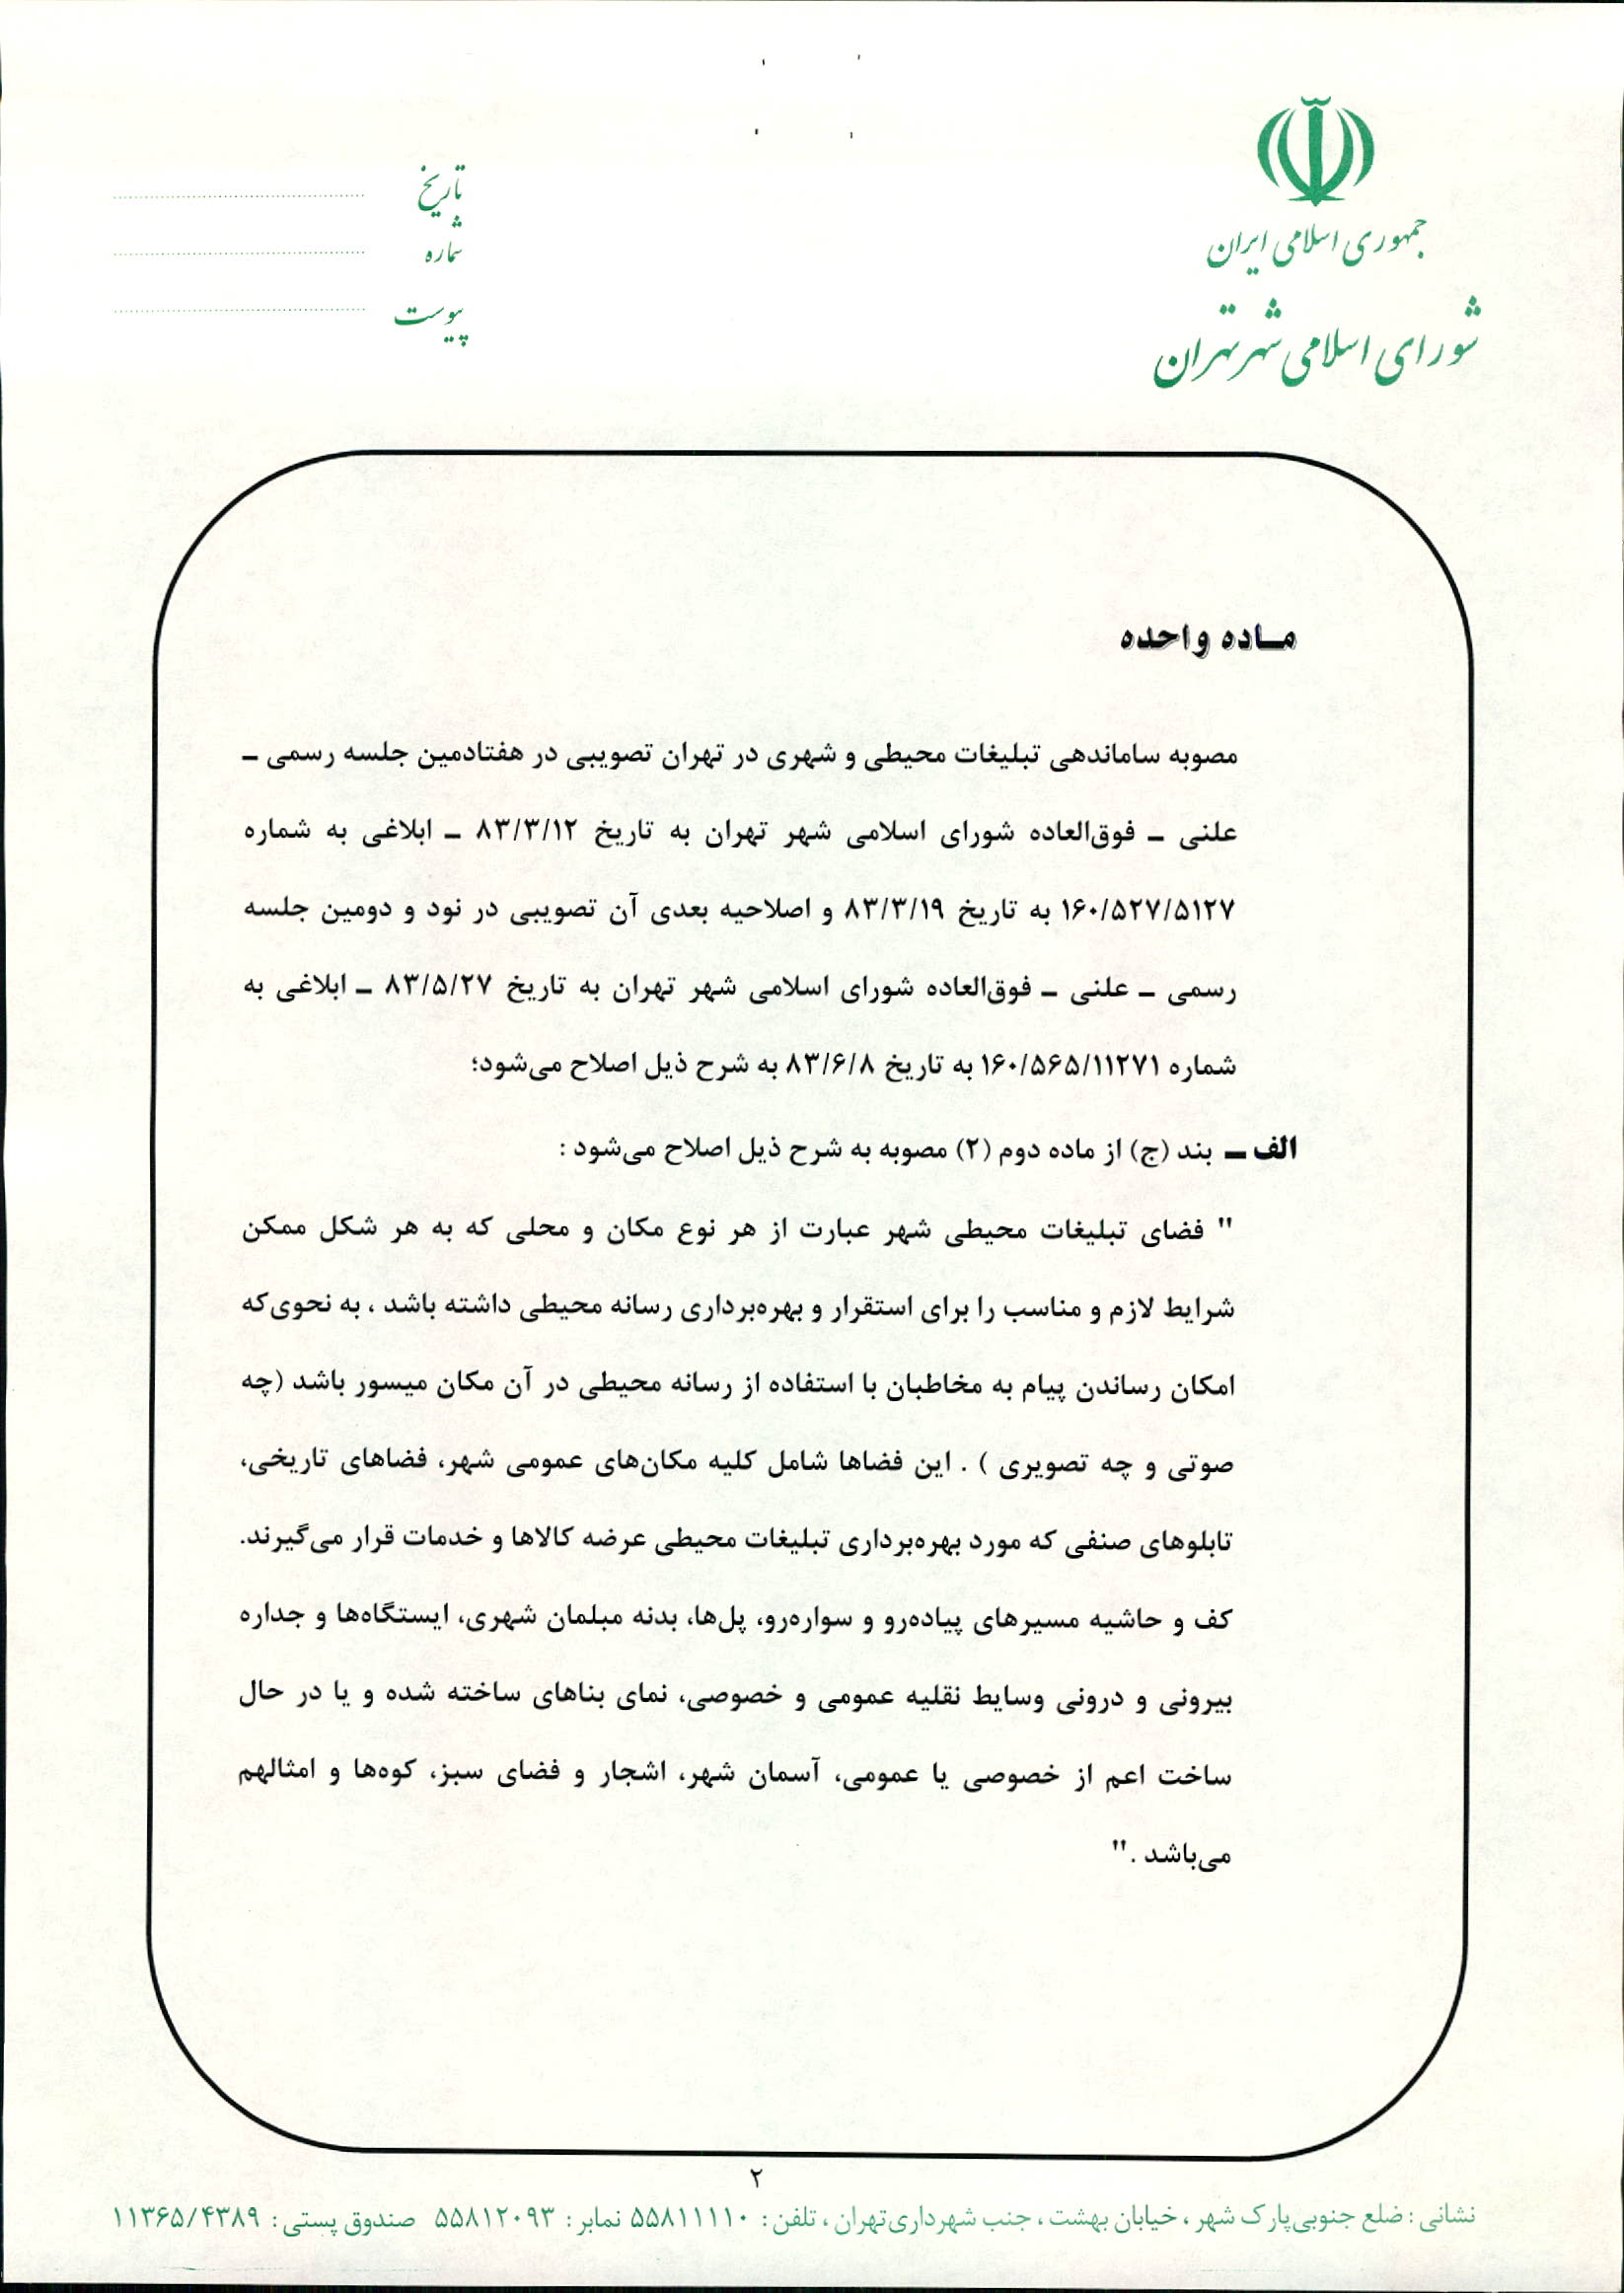 جمهوری اسلامی ایران
شورای اسلامی شهر تهران
تاریخ
شماره
پیوست
مـاده واحده
مصوبه ساماندهی تبلیغات محیطی و شهری در تهران تصویبی در هفتادمین جلسه رسمی ـ
علنی ـ فوق‌العاده شورای اسلامی شهر تهران به تاریخ ۸۳/۳/۱۲ ـ ابلاغی به شماره
۱۶۰/۵۲۷/۵۱۲۷ به تاریخ ۸۳/۳/۱۹ و اصلاحیه بعدی آن تصویبی در نود و دومین جلسه
رسمی ـ علنی ـ فوق‌العاده شورای اسلامی شهر تهران به تاریخ ۸۳/۵/۲۷ ـ ابلاغی به
شماره ۱۶۰/۵۶۵/۱۱۲۷۱ به تاریخ ۸۳/۶/۸ به شرح ذیل اصلاح می‌شود؛
الف ـ بند (ج) از ماده دوم (۲) مصوبه به شرح ذیل اصلاح می‌شود :
" فضای تبلیغات محیطی شهر عبارت از هر نوع مکان و محلی که به هر شکل ممکن
شرایط لازم و مناسب را برای استقرار و بهره‌برداری رسانه محیطی داشته باشد ، به نحوی‌که
امکان رساندن پیام به مخاطبان با استفاده از رسانه محیطی در آن مکان میسور باشد (چه
صوتی و چه تصویری ) . این فضاها شامل کلیه مکان‌های عمومی شهر، فضاهای تاریخی،
تابلوهای صنفی که مورد بهره‌برداری تبلیغات محیطی عرضه کالاها و خدمات قرار می‌گیرند.
کف و حاشیه مسیرهای پیاده‌رو و سواره‌رو، پل‌ها، بدنه مبلمان شهری، ایستگاه‌ها و جداره
بیرونی و درونی وسایط نقلیه عمومی و خصوصی، نمای بناهای ساخته شده و یا در حال
ساخت اعم از خصوصی یا عمومی، آسمان شهر، اشجار و فضای سبز، کوه‌ها و امثالهم
می‌باشد ."
۲
نشانی : ضلع جنوبی‌پارک شهر ، خیابان بهشت ، جنب شهرداری‌تهران ، تلفن : ۵۵۸۱۱۱۱۰ نمابر : ۵۵۸۱۲۰۹۳ صندوق پستی : ۱۱۳۶۵/۴۳۸۹